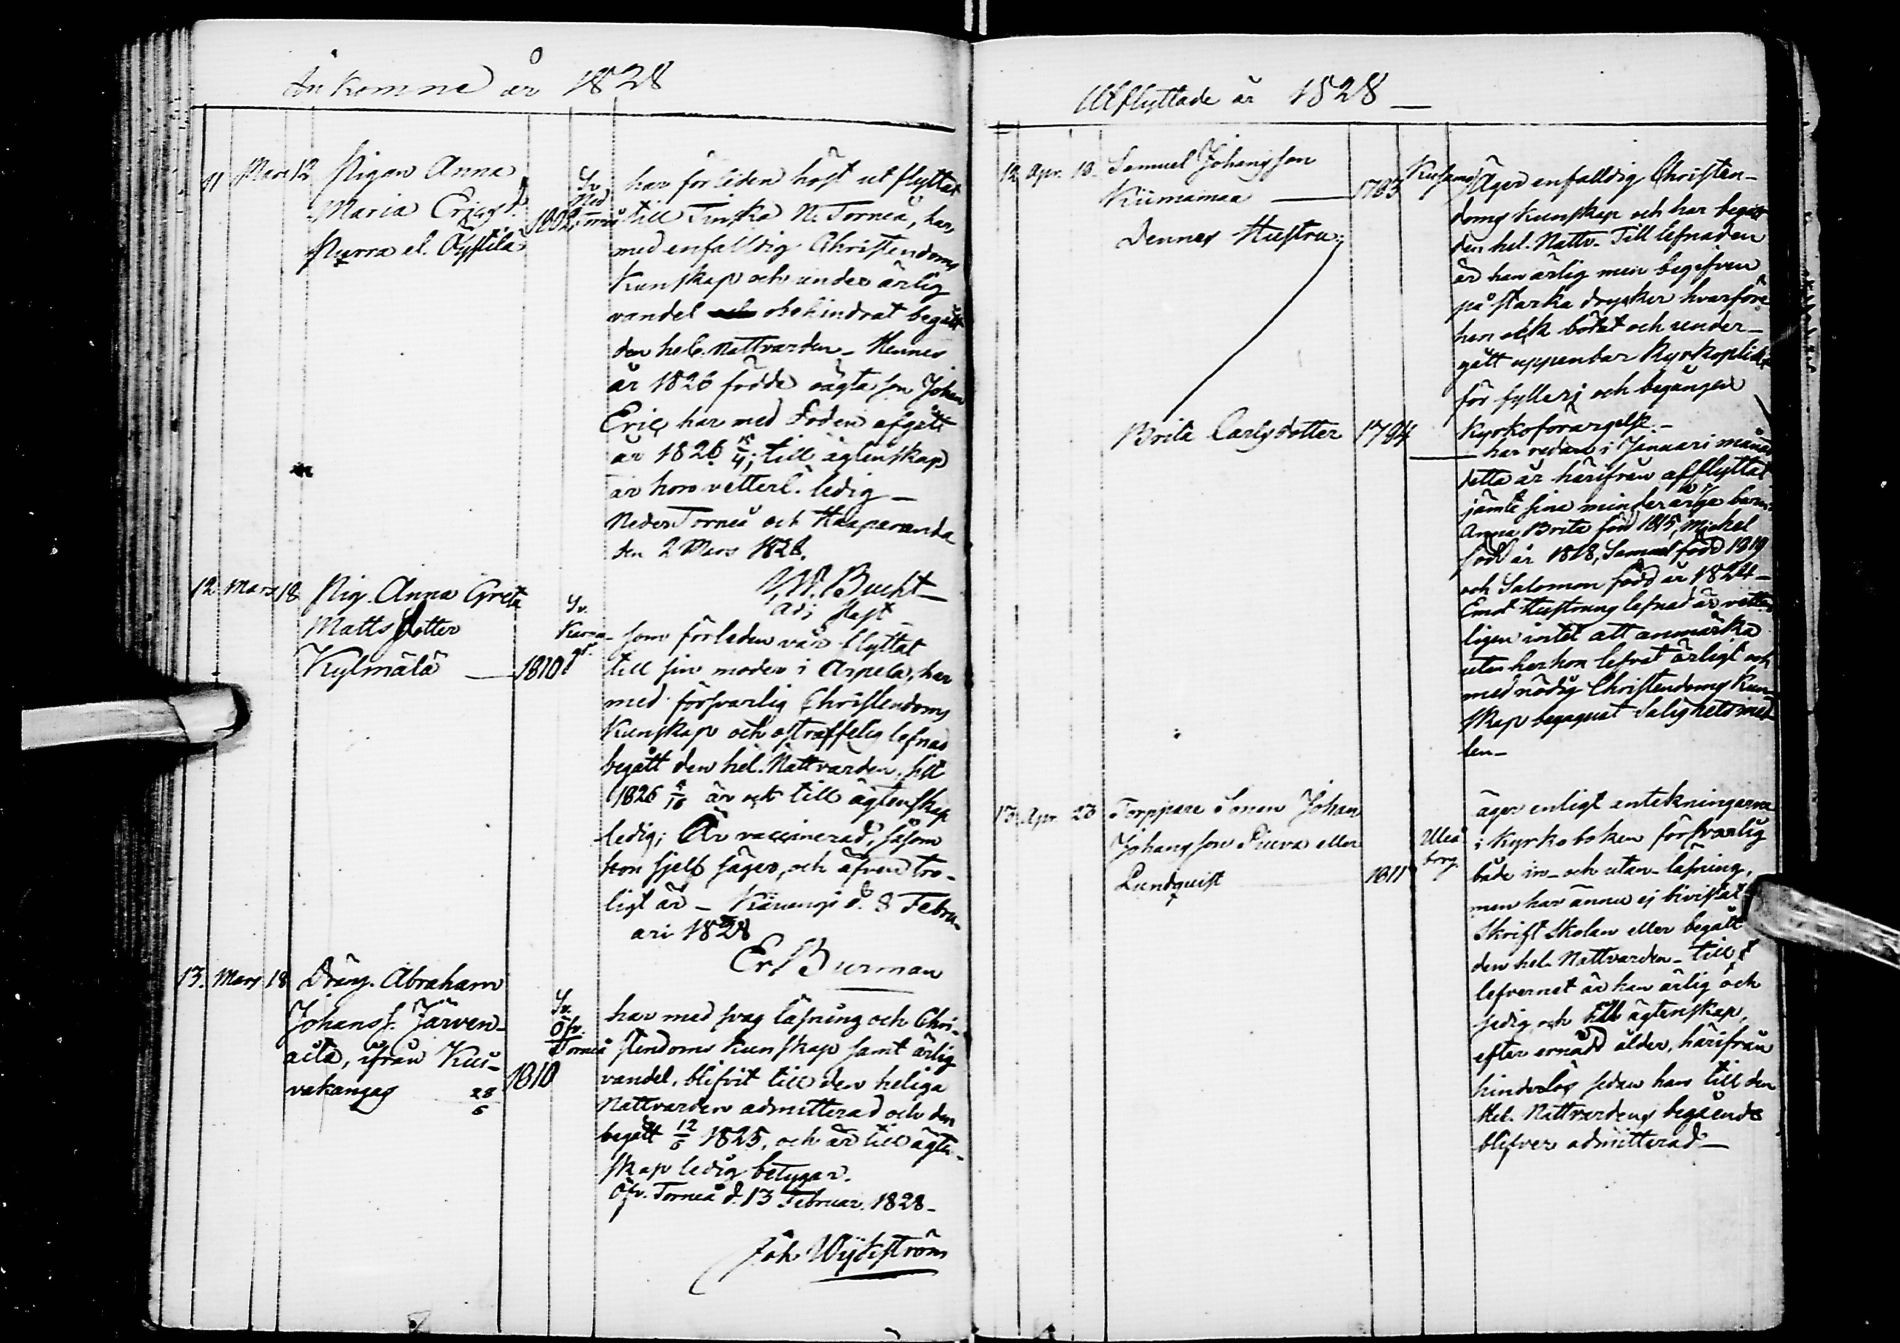 Ankomne år 1828
11 Mars 12 Pigan Anna
Maria Ericsd.
Purra el. Öystilä
1802
Sv.
Ned.
Torneå
har förliden höst utflyttat
till Finska N. Torneå, har
med enfaldig Christendoms
Kunskap och under ärlig
vandel obehindrat begått
den hel. Nattvarden - Hennes
år 1826 födde oägta son Johan
Eric har med döden afgått
år 1826; till ägtenskap
är hon vetterl. ledig -
Neder Torneå och Haaparanda
den 2 Mars 1828.
Bucht
adj. Past
12 Mars 18 Pig. Anna Greta
Mattsdotter
Kylmälä — 1810
Sv.
som förleden vår flyttat
till sin moder i Arpela, har
med försvarlig Christendoms
Kunskap och ostraffelig lefnad
begått den hel. Nattvarden, sist
1826 är ock till ägtenskap
ledig; Är vaccinerad, såsom
hon sjelf säger, och äfven tro-
ligt är - Karungi d. 8 Febru-
ari 1828
Er. Burman
13. Mars 18 Dräng. Abraham
Johanss. Järven-
ifrån Kui-
vakangas 28/6 1810
Sv.
Öfv.
Torneå
har med svag läsning och Chri-
stendoms Kunskap samt ärlig
vandel, blifvit till den heliga
Nattvarden admitterad och den
begått 12/6 1825, och är till ägten-
skap ledig betygar.
Öfv. Torneå d. 13 Februar. 1828 -
Joh. Wykström
Utflyttade år 1828 —
12 Apr. 10. Samuel Johansson
Kiimamaa — 1793
Dennes Hustru
Brita Carlsdotter 1794
Kusamo
Äger enfalldig Christen-
doms Kunskap och har begått
den hel. Nattv. Till lefnaden
är han ärlig men begifven
på starka drycker hvarföre
han ock bötat och under-
gått uppenbar Kyrkoplikt
för fylleri och begången
Kyrkoförargelse. -
har redan i Januari månad
detta år härifrån afflyttat
jämte sine minderårige barn:
Anna Brita född 1815, Michel
född år 1818, Samuel född 1819
och Salomon född år 1824 -
Emot Hustruns lefnad är vetter-
ligen intet att anmärka
utan har hon lefvat ärligt och
med nödig Christendoms Kun-
skap begagnat Salighetsmed-
len -
13. Apr. 23 Torppare Sonen Johan
Johansson Pieva eller
Lundquist 1811
Uleå
borg
äger enligt antekningarna
i Kyrkoboken försvarlig
både in- och utan-läsning,
men har ännu ej bivistat
Skrift Skolan eller begått
den hel. Nattvarden - till
lefvernet är han ärlig och
sedig och till ägtenskap
efter ernådd ålder, härifrån
hinderlös sedan han till den
Hel. Nattvardens begående
blifver admitterad —